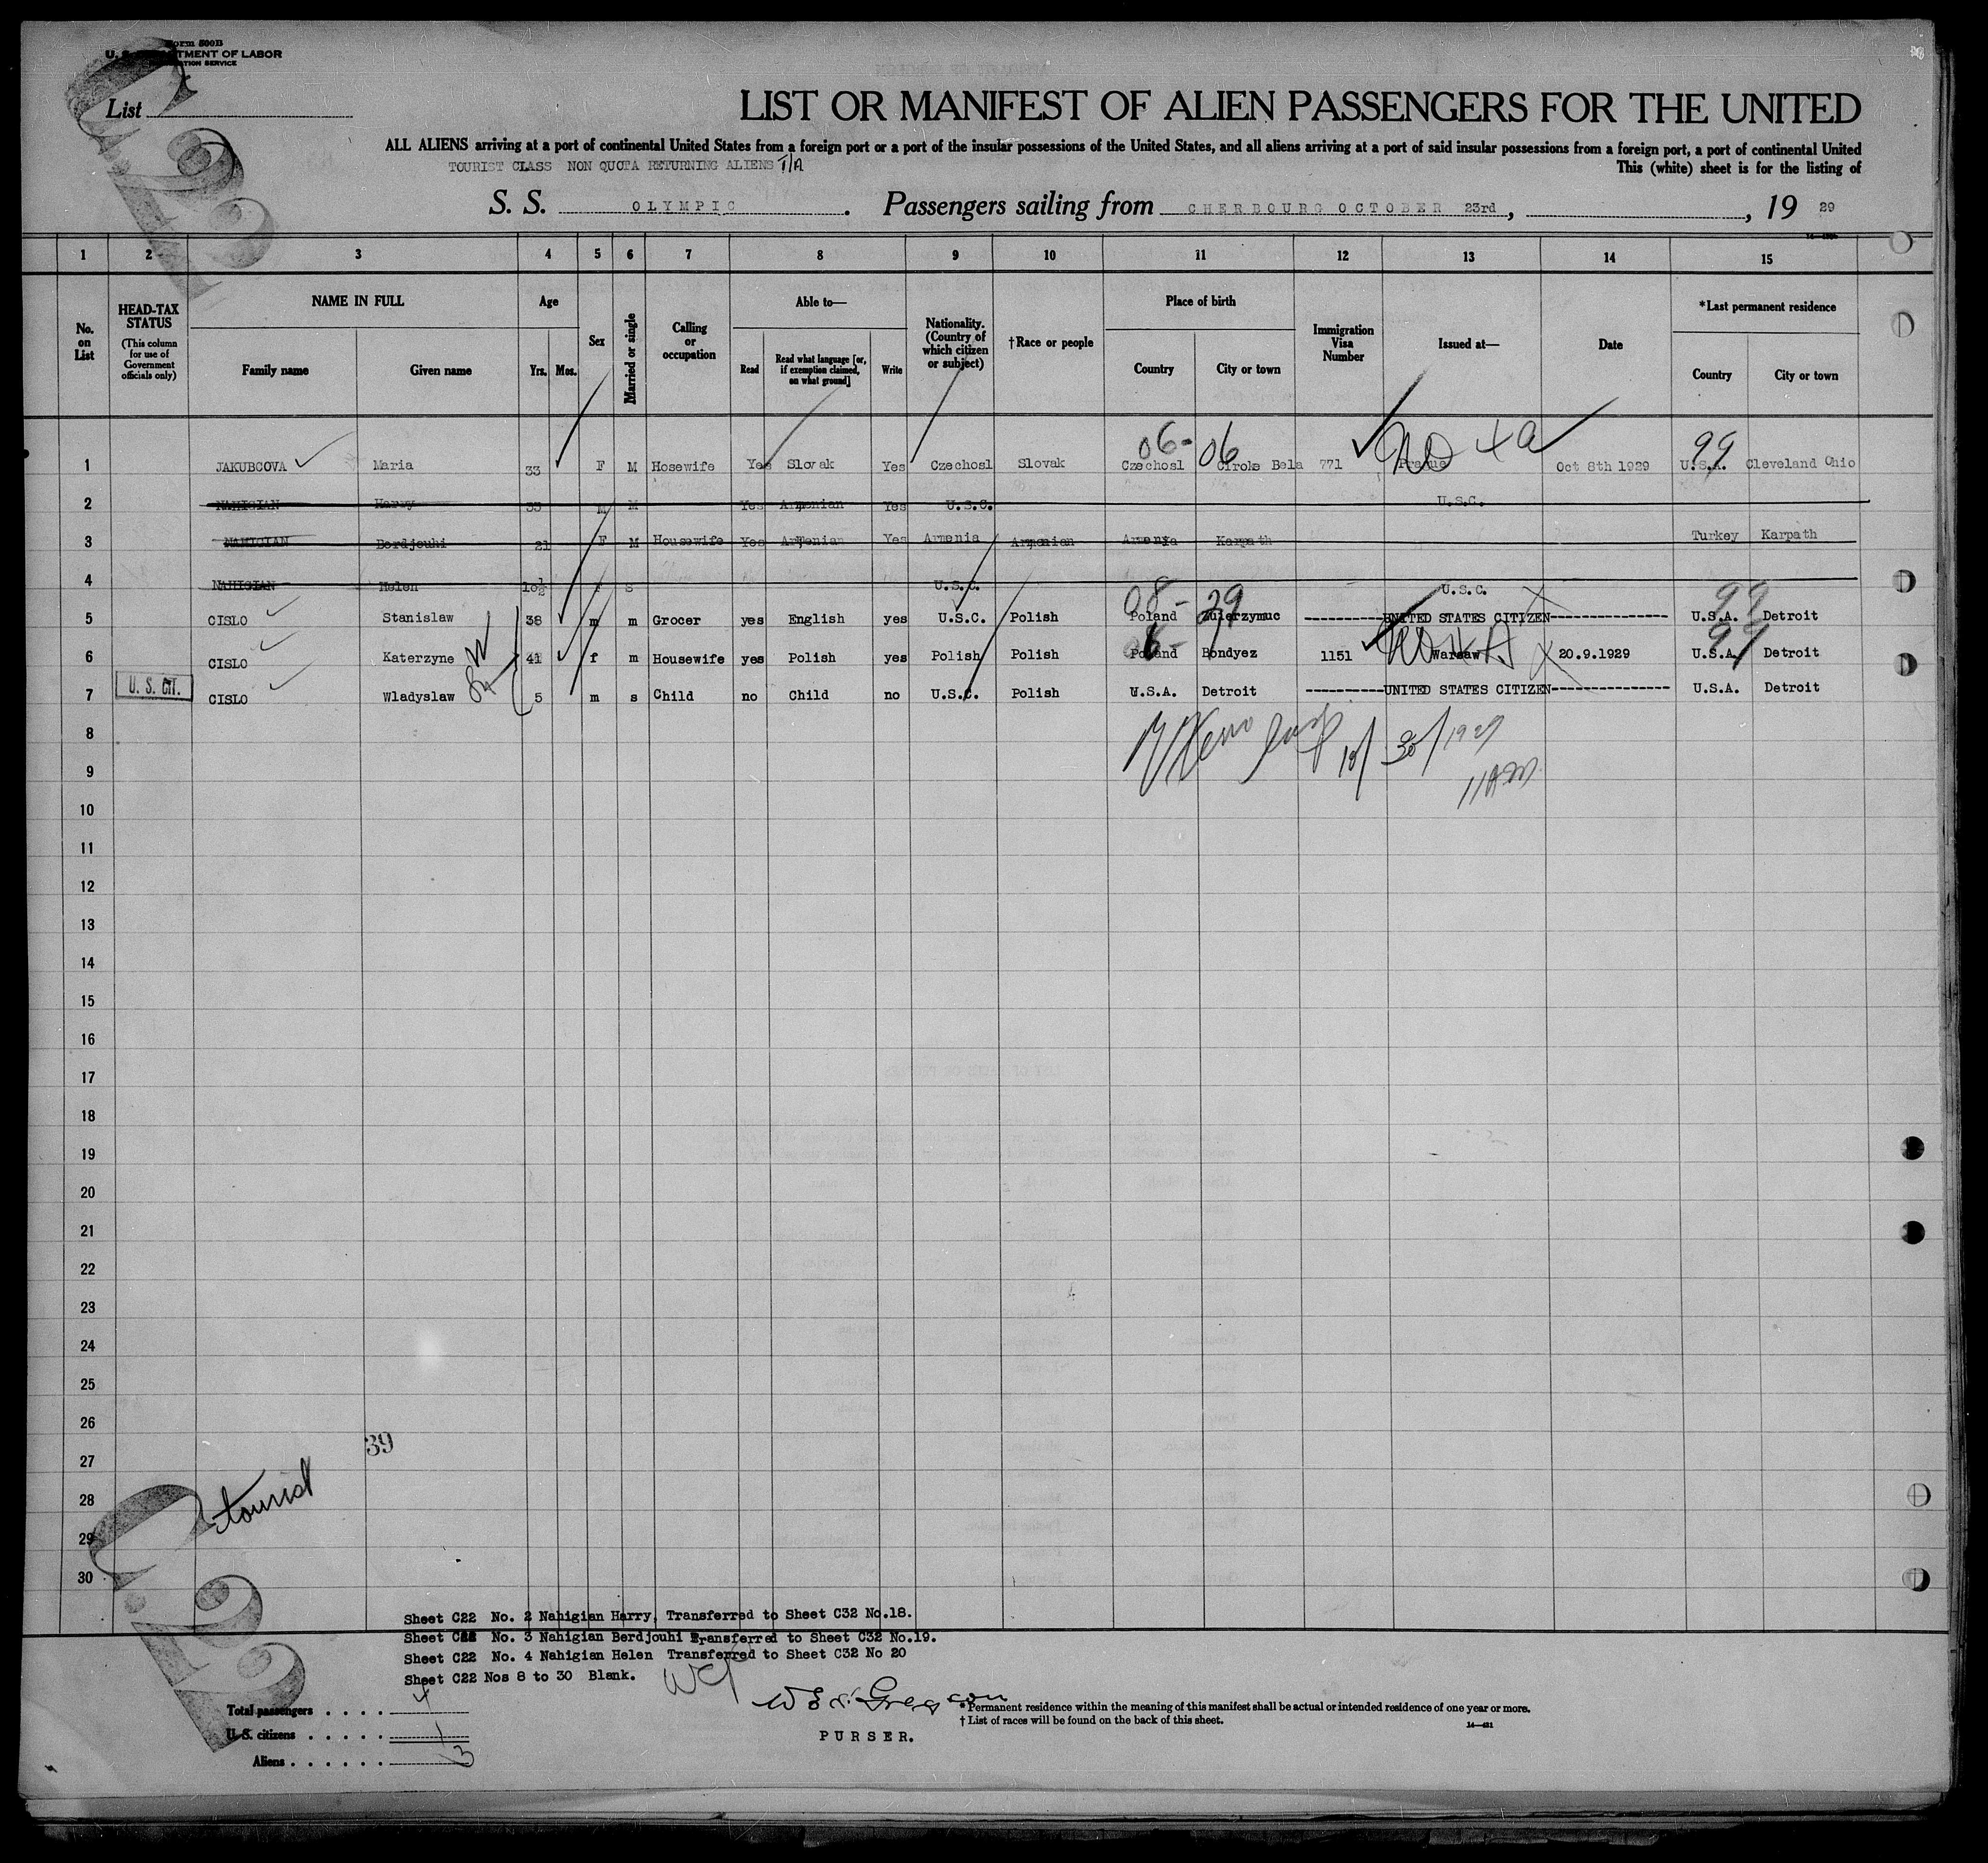 Form 500B
U. S. DEPARTMENT OF LABOR
IMMIGRATION SERVICE
List
LIST OR MANIFEST OF ALIEN PASSENGERS FOR THE UNITED
ALL ALIENS arriving at a port of continental United States from a foreign port or a port of the insular possessions of the United States, and all aliens arriving at a port of said insular possessions from a foreign port, a port of continental United
TOURIST CLASS NON QUOTA RETURNING ALIENS T/A This (white) sheet is for the listing of
S. S. OLYMPIC. Passengers sailing from CHERBOURG OCTOBER 23rd, , 19 29
1 2 3 4 5 6 7 8 9 10 11 12 13 14 15
No. on List
HEAD-TAX STATUS
(This column for use of Government officials only)
NAME IN FULL
Family name Given name
Age
Yrs. Mos.
Sex
Married or single
Calling or occupation
Able to—
Read
Read what language [or, if exemption claimed, on what ground]
Write
Nationality. (Country of which citizen or subject)
†Race or people
Place of birth
Country City or town
Immigration Visa Number
Issued at—
Date
*Last permanent residence
Country City or town
06- 06 NO + a 99
1 JAKUBCOVA Maria 33 F M Hosewife Yes Slovak Yes Czechosl Slovak Czechosl Ciroka Bela 771 Prague Oct 8th 1929 U.S.A. Cleveland Ohio
2 NAHIGIAN Harry 35 M M Yes Armenian Yes U.S.C. U.S.C.
3 NAHIGIAN Berdjouhi 21 F M Housewife Yes Armenian Yes Armenia Armenian Armenia Karpath Turkey Karpath
4 NAHIGIAN Helen 10½ F S U.S.C. U.S.C.
08- 29 99
5 CISLO Stanislaw 38 m m Grocer yes English yes U.S.C. Polish Poland Zwierzymuc UNITED STATES CITIZEN U.S.A. Detroit
6 CISLO Katerzyne 41 f m Housewife yes Polish yes Polish Polish Poland Bondyez 1151 Warsaw 20.9.1929 U.S.A. Detroit
U. S. CIT.
7 CISLO Wladyslaw 5 m s Child no Child no U.S.C. Polish U.S.A. Detroit UNITED STATES CITIZEN U.S.A. Detroit
8
10/30/1929
9
11AM
10
11
12
13
14
15
16
17
18
19
20
21
22
23
24
25
26
39
27
28
tourist
29
30
Sheet C22 No. 2 Nahigian Harry, Transferred to Sheet C32 No.18.
Sheet C22 No. 3 Nahigian Berdjouhi Transferred to Sheet C32 No.19.
Sheet C22 No. 4 Nahigian Helen Transferred to Sheet C32 No 20
Sheet C22 Nos 8 to 30 Blank.
Total passengers . . . . 4
U. S. citizens . . . . . 1
Aliens . . . . . . 3
PURSER.
* Permanent residence within the meaning of this manifest shall be actual or intended residence of one year or more.
† List of races will be found on the back of this sheet.